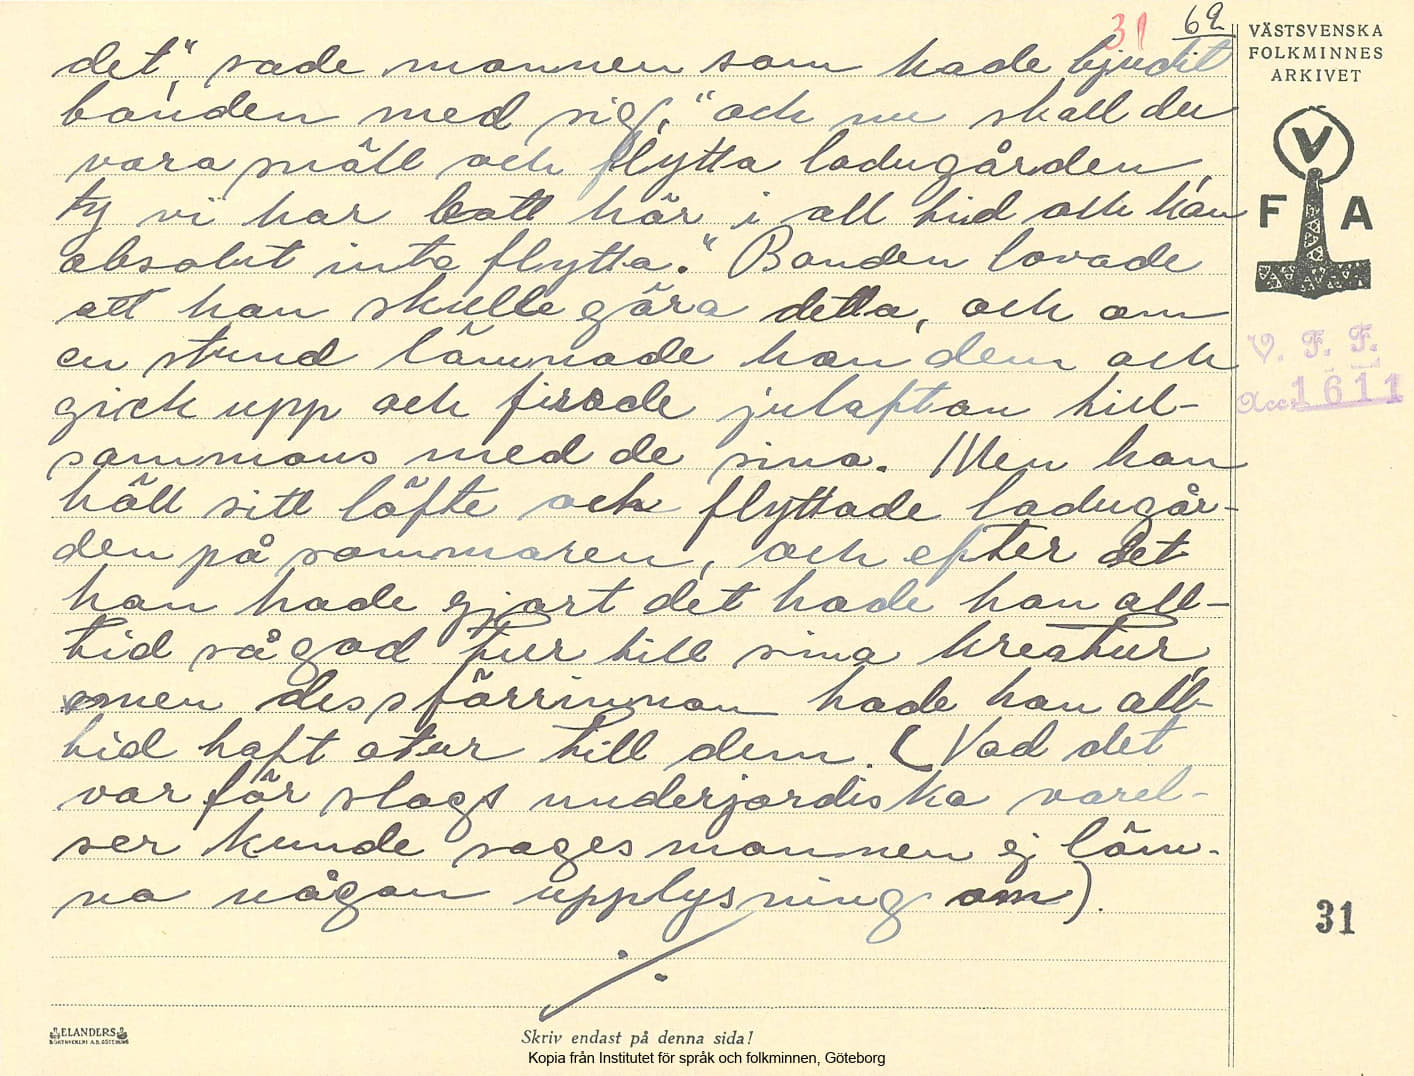 31 69
VÄSTSVENSKA
FOLKMINNES
ARKIVET
det", sade mannen som hade bjudit
bonden med sig, "och nu skall du
vara snäll och flytta ladugården,
ty vi har bott här i all tid och kan
absolut inte flytta." Bonden lovade
att han skulle göra detta, och om
en stund lämnade han dem och
gick upp och firade julafton till-
sammans med de sina. Men han
höll sitt löfte och flyttade ladugår-
den på sommaren, och efter det
han hade gjort det hade han all-
tid så god tur till sina kreatur,
men dessförrinnan hade han all-
tid haft otur till dem. (Vad det
var för slags underjordiska varel-
ser kunde sagesmannen ej läm-
na någon upplysning om).
V
F A
V. F. F.
Acc. 1611
31
ELANDERS
BOKTRYCKERI A.B. GÖTEBORG
Skriv endast på denna sida!
Kopia från Institutet för språk och folkminnen, Göteborg